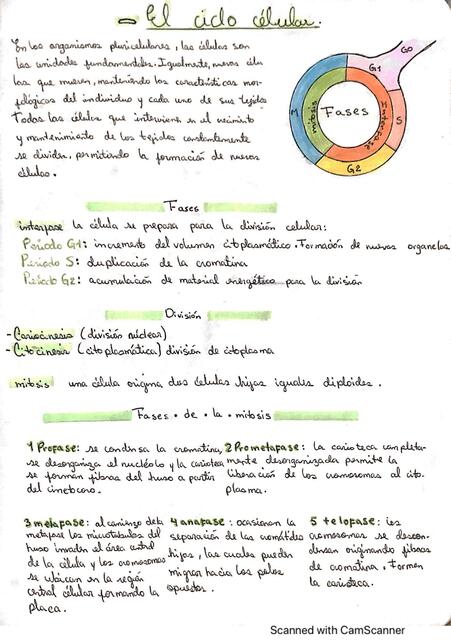 El ciclo célular.
En los organismos pluricelulares, las células son
las unidades fundamentales. Igualmente, nuevas célu
las que mueren, manteniendo las características mor-
fológicas del individuo y cada uno de sus tejidos
Todas las células que intervienen en el crecimiento
y mantenimiento de los tejidos constantemente
se dividen, permitiendo la formación de nuevas
células.
G0
G1
S
G2
M
mitosis
Interfase
Fases
Fases
interfase la célula se prepara para la división celular:
Periodo G1: incremento del volumen citoplasmático. Formación de nuevas organelas
Periodo S: duplicación de la cromatina
Periodo G2: acumulación de material energético para la división
División
- Cariocinesis (división núclear)
- Citocinesis (citoplasmática) división de citoplasma
mitosis una célula origina dos células hijas iguales diploides.
Fases · de · la · mitosis
1 Profase: se condensa la cromatina,
se desorganiza el nucléolo y la carioteca
se forman fibras del huso a partir
del
2 Prometafase: la carioteca completa-
mente desorganizada permite la
liberación de los cromosomas al cito.
plasma.
3 metafase: al comienzo de la
metafase los microtubulos del
huso invaden el área central
de la célula y los cromosomas
se ubican en la región
central célular formando la
placa.
4 anafase: ocasionan la
separación de las cromátides
hijas, las cuales pueden
migrar hacia los polos
opuestos.
5 telofase: los
cromosomas se descon-
densan originando fibras
de cromatina. Forman
la carioteca.
Scanned with CamScanner